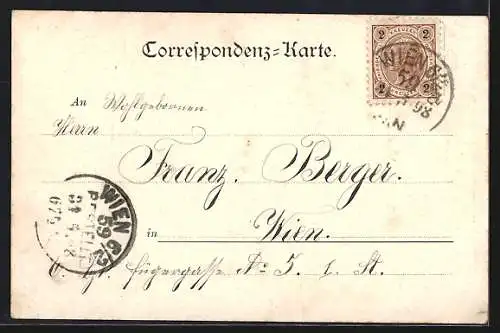 Correspondenz-Karte.
2 KREUZER 2
2 2
WIEN
98
An Wohlgebornen
Herrn
Franz Berger.
in Wien.
WIEN 6/2
59
BESTELLT
Fügergasse No 5. 1. St.